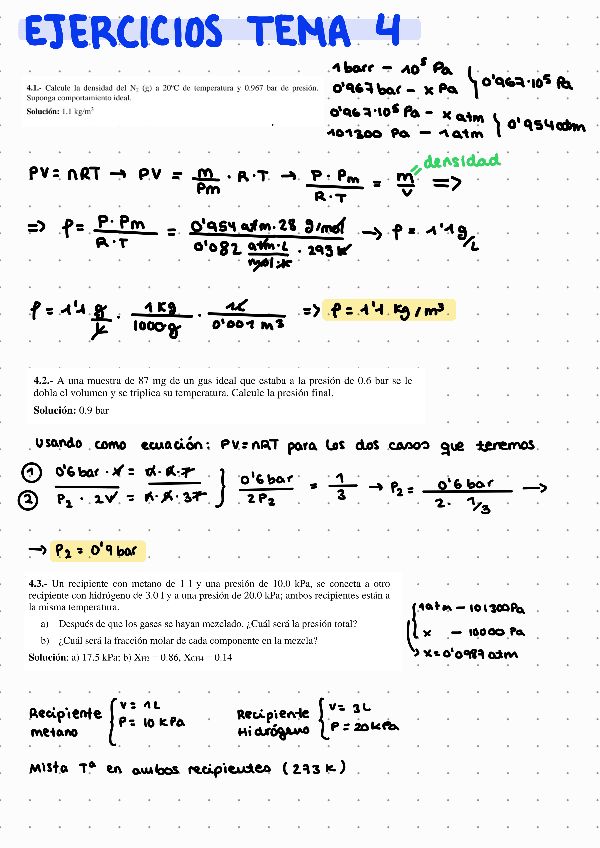 EJERCICIOS TEMA 4
4.1.- Calcule la densidad del N₂ (g) a 20ºC de temperatura y 0.967 bar de presión.
Suponga comportamiento ideal.
Solución: 1.1 kg/m³
1 barr - 10⁵ Pa
0'967 bar - x Pa } 0'967·10⁵ Pa
0'967·10⁵ Pa - x atm
101300 Pa - 1 atm } 0'954 atm
densidad
PV = nRT → PV = m/Pm · R·T → P·Pm/R·T = m/V =>
=> ρ = P·Pm/R·T = 0'954 atm·28 g/mol / 0'082 atm·L/mol·K · 293 K → ρ = 1'1 g/L
ρ = 1'1 g/L · 1 Kg/1000 g · 1L/0'001 m³ => ρ = 1'1 Kg/m³
4.2.- A una muestra de 87 mg de un gas ideal que estaba a la presión de 0.6 bar se le
dobla el volumen y se triplica su temperatura. Calcule la presión final.
Solución: 0.9 bar
Usando como ecuación: PV=nRT para los dos casos que tenemos
① 0'6 bar · V = n·R·T
② P₂ · 2V = n·R·3T } 0'6 bar/2P₂ = 1/3 → P₂ = 0'6 bar/2· 1/3 →
→ P₂ = 0'9 bar
4.3.- Un recipiente con metano de 1 l y una presión de 10.0 kPa, se conecta a otro
recipiente con hidrógeno de 3.0 l y a una presión de 20.0 kPa; ambos recipientes están a
la misma temperatura.
a) Después de que los gases se hayan mezclado. ¿Cuál será la presión total?
b) ¿Cuál será la fracción molar de cada componente en la mezcla?
Solución: a) 17.5 kPa; b) X_H2 = 0.86, X_CH4 = 0.14
1 atm - 101300 Pa
x - 10000 Pa
x = 0'0987 atm
Recipiente metano { V = 1 L
P = 10 kPa
Recipiente Hidrógeno { V = 3 L
P = 20 kPa
Mista Tª en ambos recipientes (293 K)